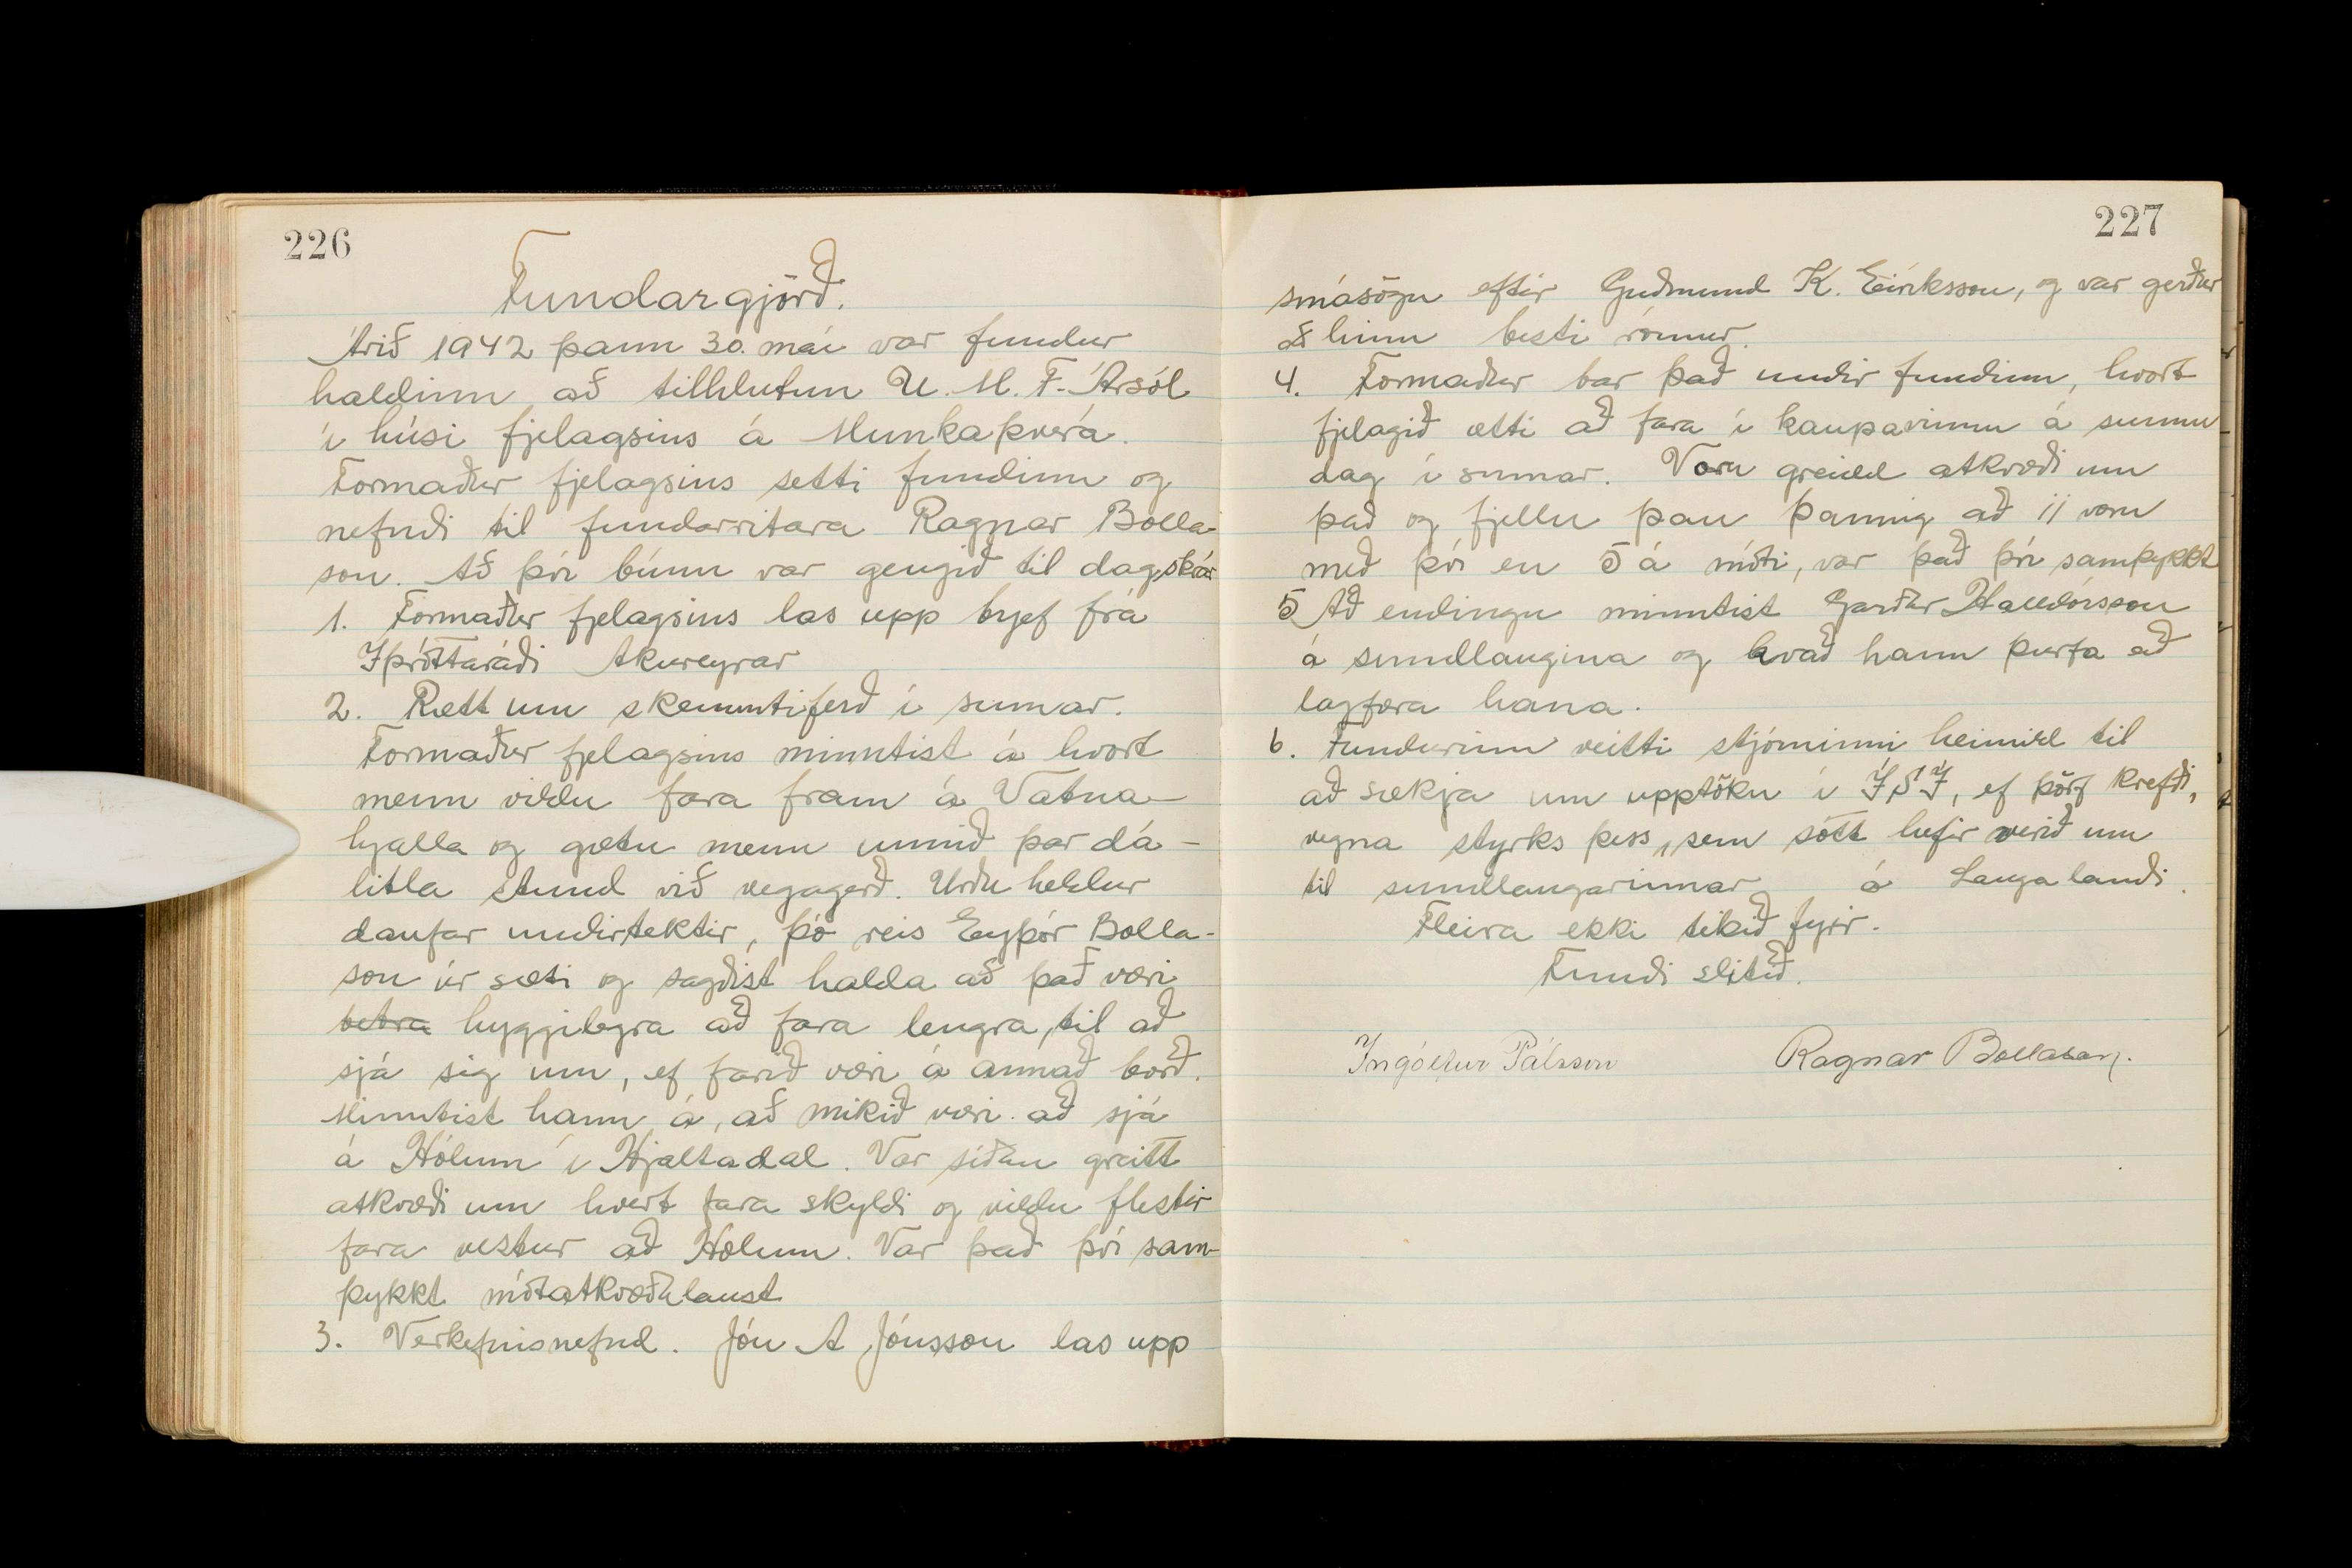 226
Fundargjörð.
Árið 1942 þann 30. maí var fundur
haldinn að tilhlutun U. M. F. Ársól
í húsi fjelagsins á Munkaþverá.
Formaður fjelagsins setti fundinn og
nefndi til fundarritara Ragnar Bolla-
son. Að því búnu var gengið til dagskrár
1. Formaður fjelagsins las upp brjef frá
Íþróttaráði Akureyrar
2. Rætt um skemmtiferð í sumar.
Formaður fjelagsins minntist á hvort
menn vildu fara fram á Vatna-
hjalla og gætu menn unnið þar dá-
litla stund við vegagerð. Urðu heldur
daufar undirtektir, þó reis Eyþór Bolla-
son úr sæti og sagðist halda að það væri
betra hyggilegra að fara lengra, til að
sjá sig um, ef farið væri á annað borð.
Minntist hann á, að mikið væri að sjá
á Hólum í Hjaltadal. Var síðan greitt
atkvæði um hvert fara skyldi og vildu flestir
fara vestur að Hólum. Var það því sam-
þykkt mótatkvæðalaust
3. Verkefnisnefnd. Jón A Jónsson las upp
227
smásögu eftir Guðmund K. Eiríksson, og var gerður
að hinn besti rómur.
4. Formaður bar það undir fundinn, hvort
fjelagið ætti að fara í kaupavinnu á sunnu
dag í sumar. Voru greidd atkvæði um
það og fjellu þau þannig að 11 voru
með því en 5 á móti, var það því samþykkt
5 Að endingu minntist Garðar Halldórsson
á sundlaugina og kvað hann þurfa að
lagfæra hana.
6. Fundurinn veitti stjórninni heimild til
að sækja um upptöku í Í,S,Í, ef þörf krefði,
vegna styrks þess, sem sótt hefir verið um
til sundlaugarinnar á Laugalandi.
Fleira ekki tekið fyrir.
Fundi slitið.
Ingólfur Pálsson Ragnar Bollason.